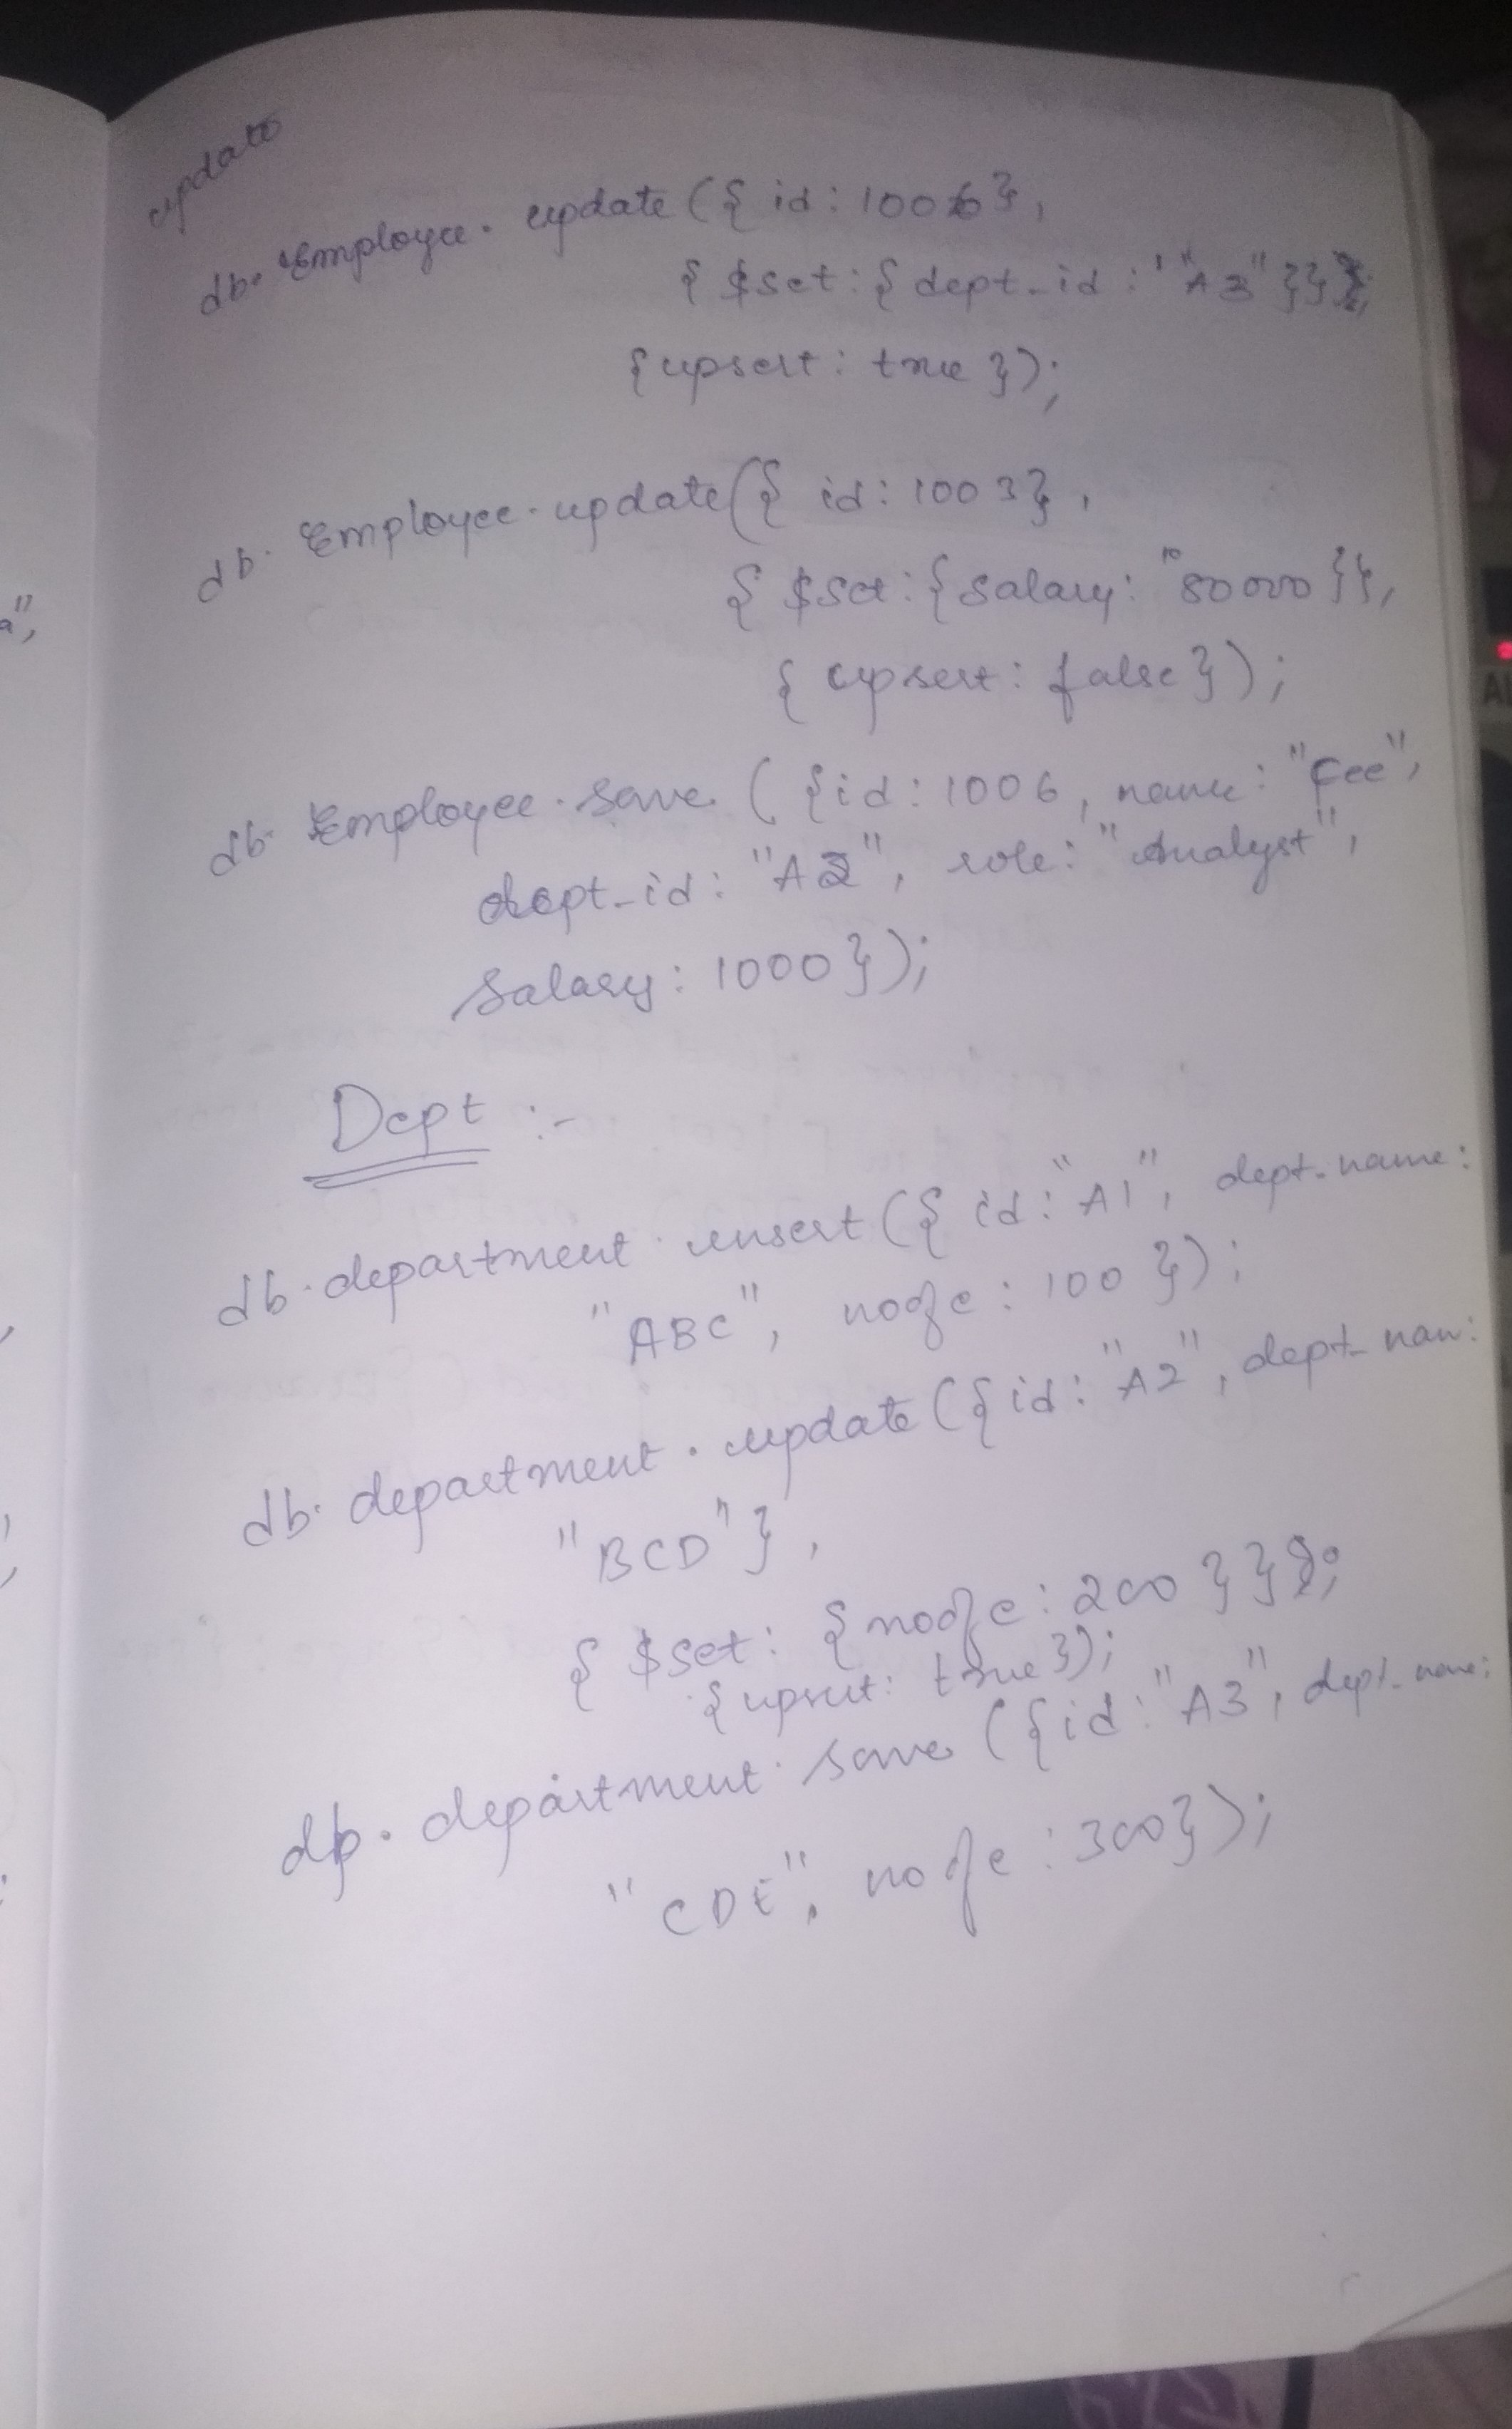 update
db. Employee. update ({ id: 1006},
{ $set: { dept_id : "A3" }}
{upsert: true });
db. Employee. update({ id: 1003},
{ $set: {salary: "80000 }},
{ upsert: false});
db. Employee. save ({id: 1006, name: "Fee",
dept_id: "A2", role: "Analyst",
Salary: 1000});
Dept :-
db. department. insert ({ id: "A1", dept_name:
"ABC", nofe: 100 });
db. department. update ({id: "A2", dept_nam:
"BCD" },
{ $set: {nofe: 200 }}
{upsert: true});
db. department. save ({id: "A3", dept_name:
"CDE", nofe: 300});
a",